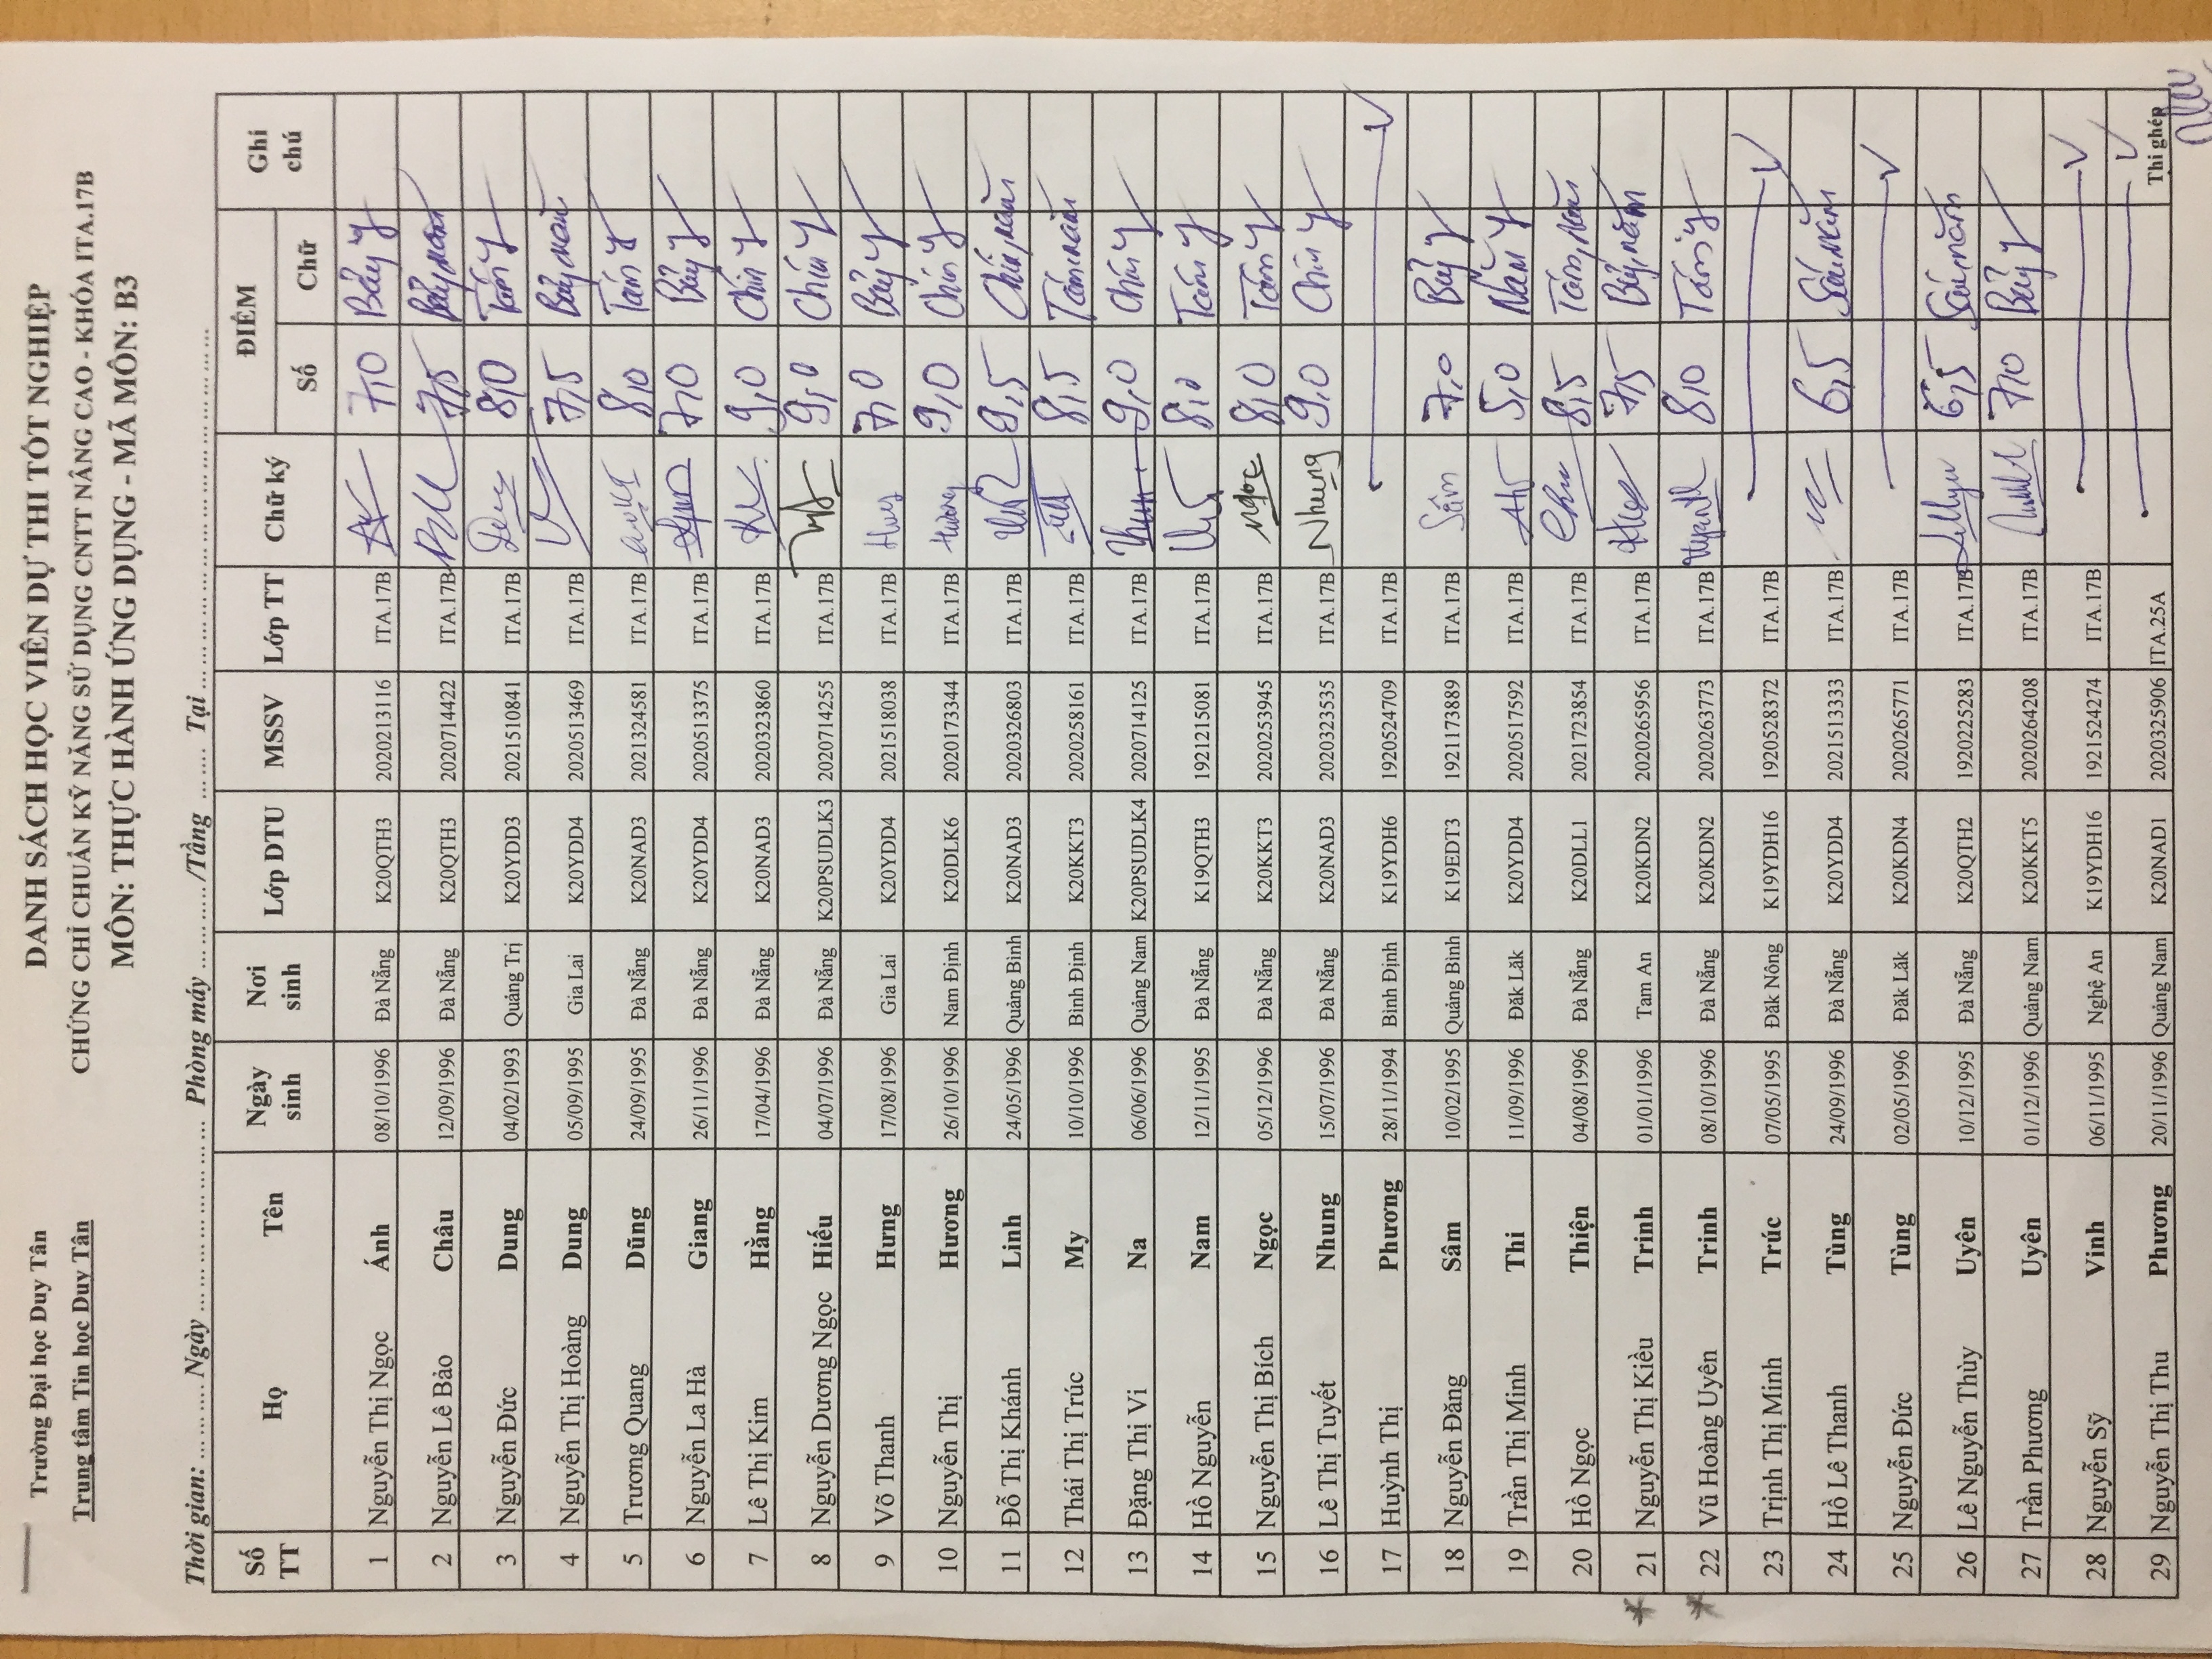 Trường Đại học Duy Tân
Trung tâm Tin học Duy Tân
DANH SÁCH HỌC VIÊN DỰ THI TỐT NGHIỆP
CHỨNG CHỈ CHUẨN KỸ NĂNG SỬ DỤNG CNTT NÂNG CAO - KHÓA ITA.17B
MÔN: THỰC HÀNH ỨNG DỤNG - MÃ MÔN: B3
Thời gian: ............ Ngày ........................ Phòng máy ............/Tầng ....... Tại ........................
Số TT Họ Tên Ngày sinh Nơi sinh Lớp DTU MSSV Lớp TT Chữ ký ĐIỂM Ghi chú
Số Chữ
1 Nguyễn Thị Ngọc Ánh 08/10/1996 Đà Nẵng K20QTH3 2020213116 ITA.17B 7,0 Bảy y
2 Nguyễn Lê Bảo Châu 12/09/1996 Đà Nẵng K20QTH3 2020714422 ITA.17B 7,5 Bảy,năm
3 Nguyễn Đức Dung 04/02/1993 Quảng Trị K20YDD3 2021510841 ITA.17B 8,0 Tám y
4 Nguyễn Thị Hoàng Dung 05/09/1995 Gia Lai K20YDD4 2020513469 ITA.17B 7,5 Bảy,năm
5 Trương Quang Dũng 24/09/1995 Đà Nẵng K20NAD3 2021324581 ITA.17B 8,0 Tám y
6 Nguyễn La Hà Giang 26/11/1996 Đà Nẵng K20YDD4 2020513375 ITA.17B 7,0 Bảy y
7 Lê Thị Kim Hằng 17/04/1996 Đà Nẵng K20NAD3 2020323860 ITA.17B 9,0 Chín y
8 Nguyễn Dương Ngọc Hiếu 04/07/1996 Đà Nẵng K20PSUDLK3 2020714255 ITA.17B 9,0 Chín y
9 Võ Thanh Hưng 17/08/1996 Gia Lai K20YDD4 2021518038 ITA.17B 7,0 Bảy y
10 Nguyễn Thị Hương 26/10/1996 Nam Định K20DLK6 2020173344 ITA.17B Hương 9,0 Chín y
11 Đỗ Thị Khánh Linh 24/05/1996 Quảng Bình K20NAD3 2020326803 ITA.17B 9,5 Chín,năm
12 Thái Thị Trúc My 10/10/1996 Bình Định K20KKT3 2020258161 ITA.17B 8,5 Tám,năm
13 Đặng Thị Vi Na 06/06/1996 Quảng Nam K20PSUDLK4 2020714125 ITA.17B 9,0 Chín y
14 Hồ Nguyễn Nam 12/11/1995 Đà Nẵng K19QTH3 1921215081 ITA.17B 8,0 Tám y
15 Nguyễn Thị Bích Ngọc 05/12/1996 Đà Nẵng K20KKT3 2020253945 ITA.17B Ngọc 8,0 Tám y
16 Lê Thị Tuyết Nhung 15/07/1996 Đà Nẵng K20NAD3 2020323535 ITA.17B Nhung 9,0 Chín y
17 Huỳnh Thị Phương 28/11/1994 Bình Định K19YDH6 1920524709 ITA.17B V
18 Nguyễn Đăng Sâm 10/02/1995 Quảng Bình K19EDT3 1921173889 ITA.17B Sâm 7,0 Bảy y
19 Trần Thị Minh Thi 11/09/1996 Đăk Lăk K20YDD4 2020517592 ITA.17B 5,0 Năm y
20 Hồ Ngọc Thiện 04/08/1996 Đà Nẵng K20DLL1 2021723854 ITA.17B 8,5 Tám,năm
21 Nguyễn Thị Kiều Trinh 01/01/1996 Tam An K20KDN2 2020265956 ITA.17B 7,5 Bảy,năm
22 Vũ Hoàng Uyên Trinh 08/10/1996 Đà Nẵng K20KDN2 2020263773 ITA.17B 8,0 Tám y
23 Trịnh Thị Minh Trúc 07/05/1995 Đăk Nông K19YDH16 1920528372 ITA.17B V
24 Hồ Lê Thanh Tùng 24/09/1996 Đà Nẵng K20YDD4 2021513333 ITA.17B 6,5 Sáu,năm
25 Nguyễn Đức Tùng 02/05/1996 Đăk Lăk K20KDN4 2020265771 ITA.17B V
26 Lê Nguyễn Thùy Uyên 10/12/1995 Đà Nẵng K20QTH2 1920225283 ITA.17B 6,5 Sáu,năm
27 Trần Phương Uyên 01/12/1996 Quảng Nam K20KKT5 2020264208 ITA.17B 7,0 Bảy y
28 Nguyễn Sỹ Vinh 06/11/1995 Nghệ An K19YDH16 1921524274 ITA.17B V
29 Nguyễn Thị Thu Phương 20/11/1996 Quảng Nam K20NAD1 2020325906 ITA.25A V Thi ghép